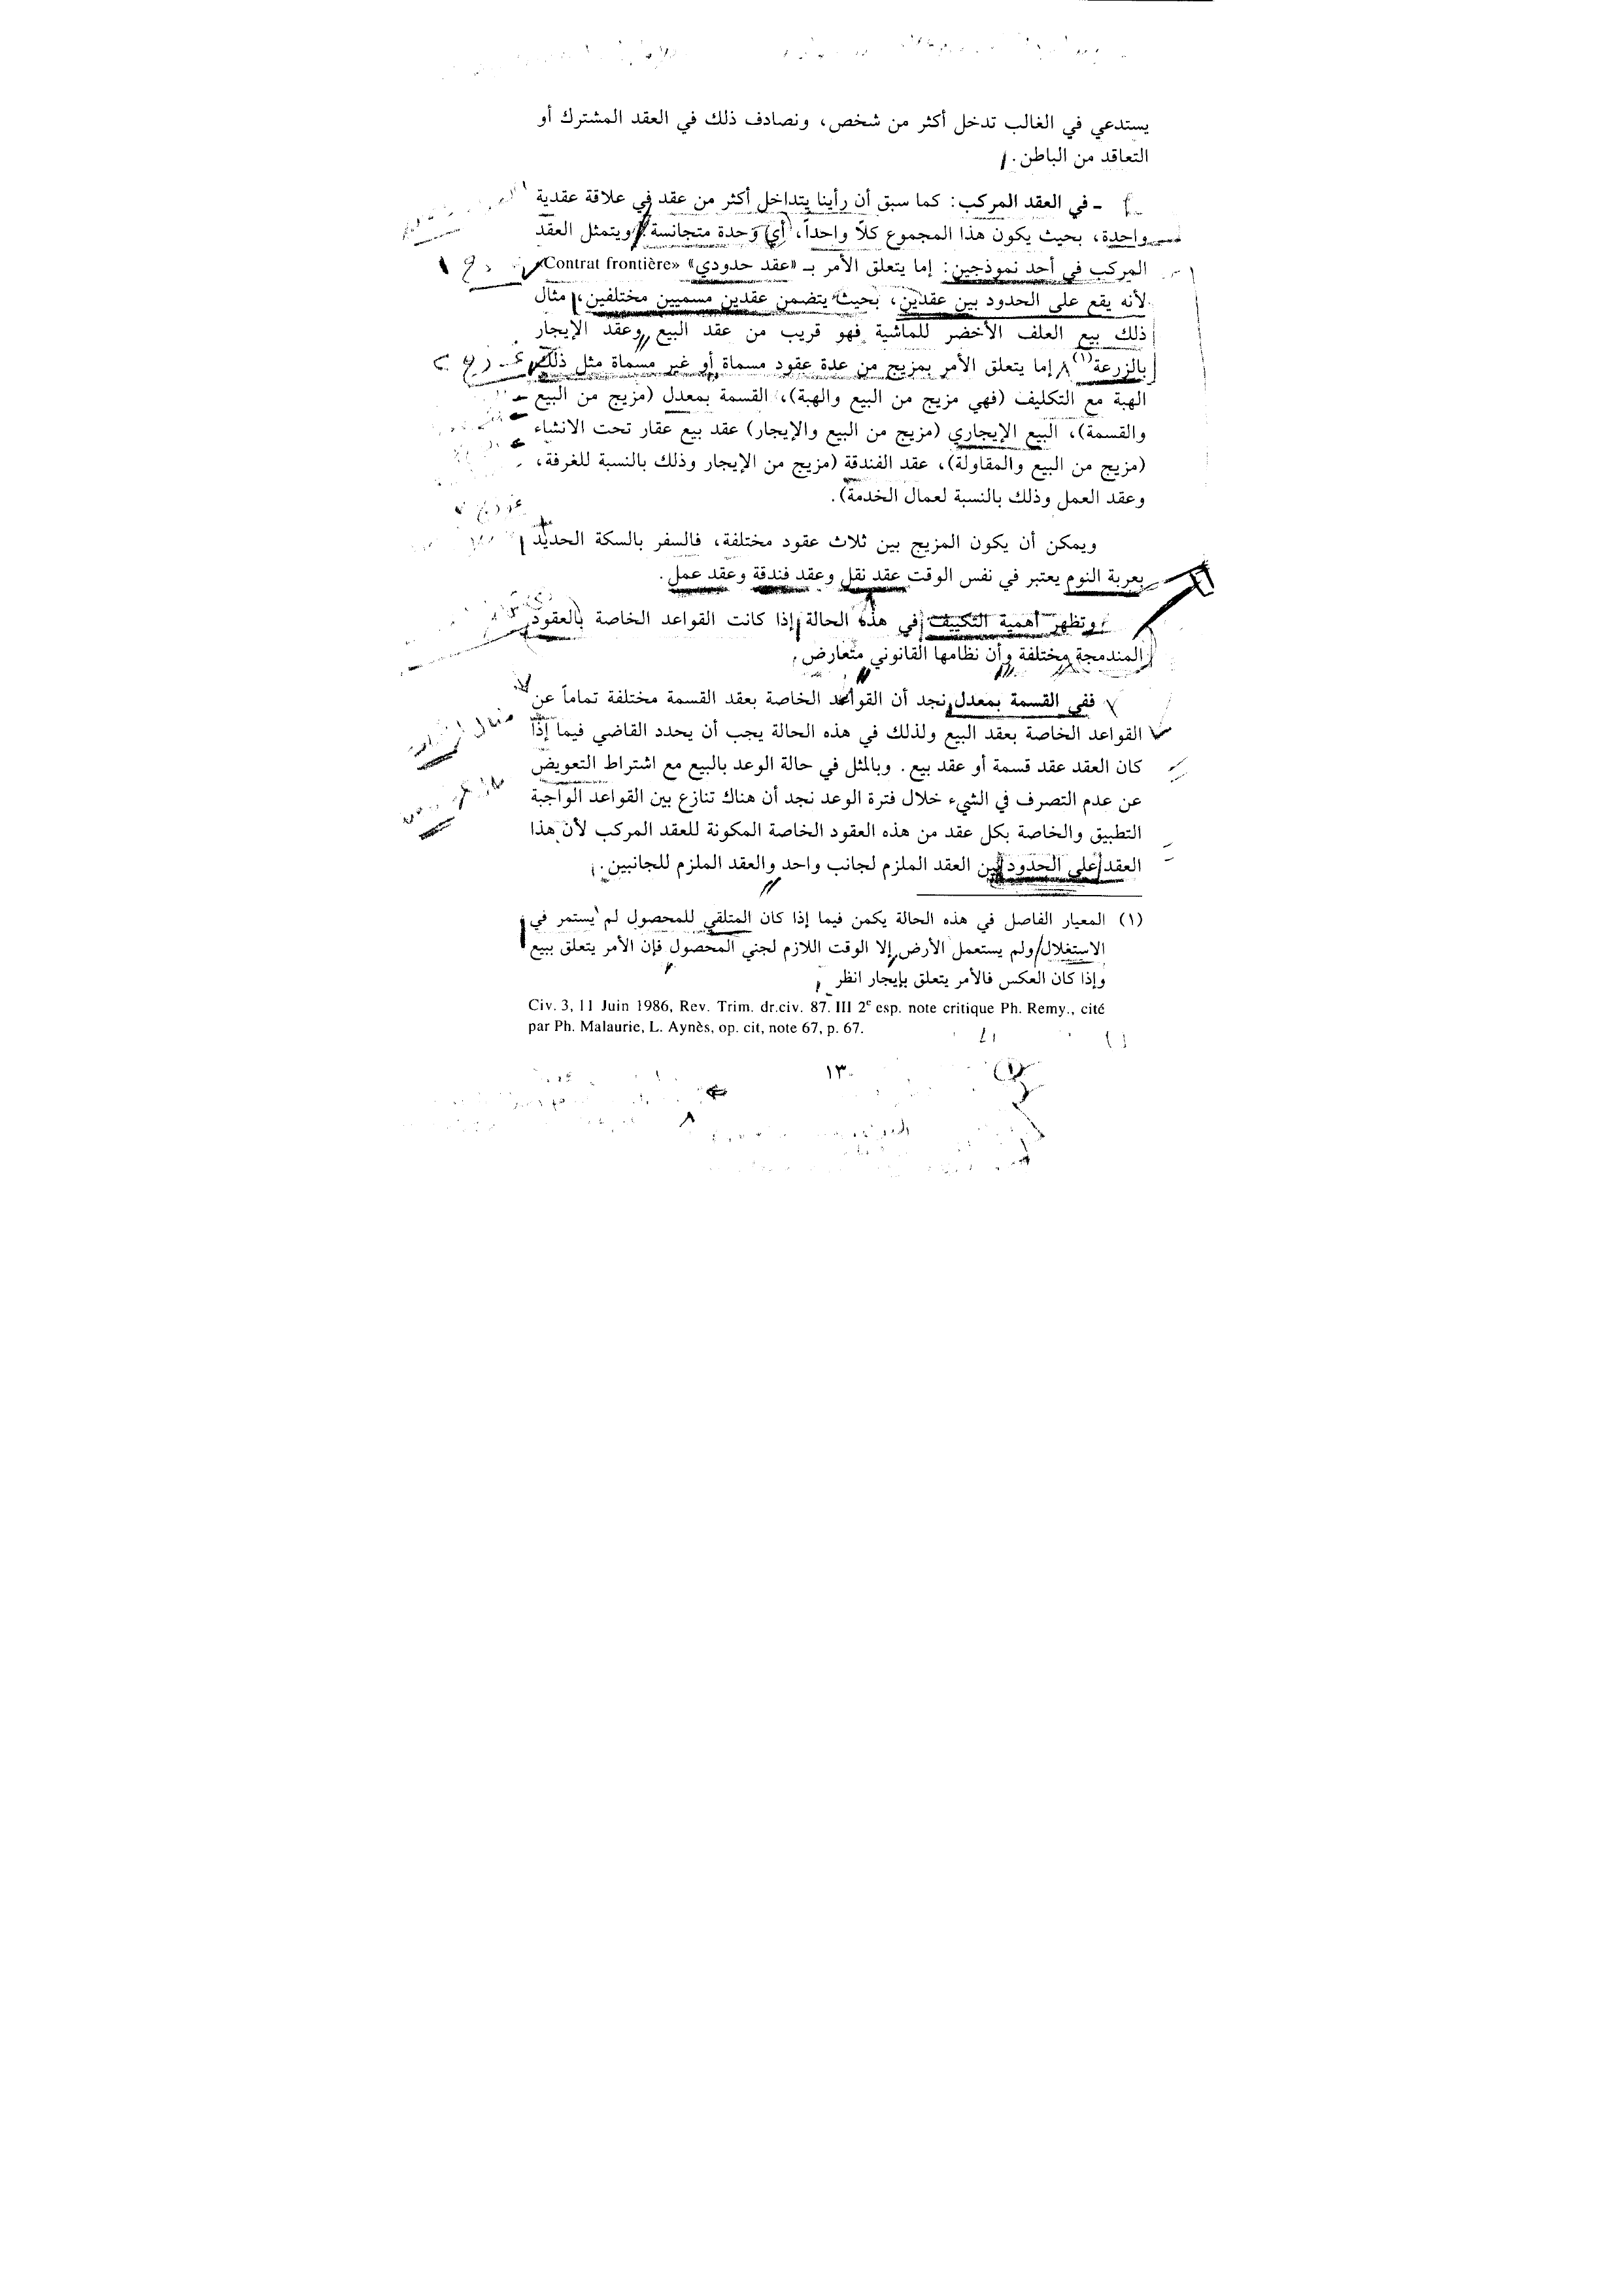 يستدعي في الغالب تدخل أكثر من شخص، ونصادف ذلك في العقد المشترك أو
التعاقد من الباطن.
ـ في العقد المركب: كما سبق أن رأينا يتداخل أكثر من عقد في علاقة عقدية
واحدة، بحيث يكون هذا المجموع كلاً واحداً، أي وحدة متجانسة. ويتمثل العقد
المركب في أحد نموذجين: إما يتعلق الأمر بـ «عقد حدودي» «Contrat frontière»
لأنه يقع على الحدود بين عقدين، بحيث يتضمن عقدين مسميين مختلفين، مثال
ذلك بيع العلف الأخضر للماشية فهو قريب من عقد البيع وعقد الإيجار
بالزرعة(١) إما يتعلق الأمر بمزيج من عدة عقود مسماة أو غير مسماة مثل ذلك
الهبة مع التكليف (فهي مزيج من البيع والهبة)، القسمة بمعدل (مزيج من البيع
والقسمة)، البيع الإيجاري (مزيج من البيع والإيجار) عقد بيع عقار تحت الانشاء
(مزيج من البيع والمقاولة)، عقد الفندقة (مزيج من الإيجار وذلك بالنسبة للغرفة،
وعقد العمل وذلك بالنسبة لعمال الخدمة).
ويمكن أن يكون المزيج بين ثلاث عقود مختلفة، فالسفر بالسكة الحديد
بعربة النوم يعتبر في نفس الوقت عقد نقل وعقد فندقة وعقد عمل.
وتظهر أهمية التكييف في هذه الحالة إذا كانت القواعد الخاصة بالعقود
المندمجة مختلفة وأن نظامها القانوني متعارض.
ففي القسمة بمعدل نجد أن القواعد الخاصة بعقد القسمة مختلفة تماماً عن
القواعد الخاصة بعقد البيع ولذلك في هذه الحالة يجب أن يحدد القاضي فيما إذا
كان العقد عقد قسمة أو عقد بيع. وبالمثل في حالة الوعد بالبيع مع اشتراط التعويض
عن عدم التصرف في الشيء خلال فترة الوعد نجد أن هناك تنازع بين القواعد الواجبة
التطبيق والخاصة بكل عقد من هذه العقود الخاصة المكونة للعقد المركب لأن هذا
العقد على الحدود بين العقد الملزم لجانب واحد والعقد الملزم للجانبين.
(١) المعيار الفاصل في هذه الحالة يكمن فيما إذا كان المتلقي للمحصول لم يستمر في
الاستغلال ولم يستعمل الأرض إلا الوقت اللازم لجني المحصول فإن الأمر يتعلق ببيع
وإذا كان العكس فالأمر يتعلق بإيجار انظر
Civ. 3, 11 Juin 1986, Rev. Trim. dr.civ. 87. III 2e esp. note critique Ph. Remy., cité
par Ph. Malaurie, L. Aynès, op. cit, note 67, p. 67.
١٣٠